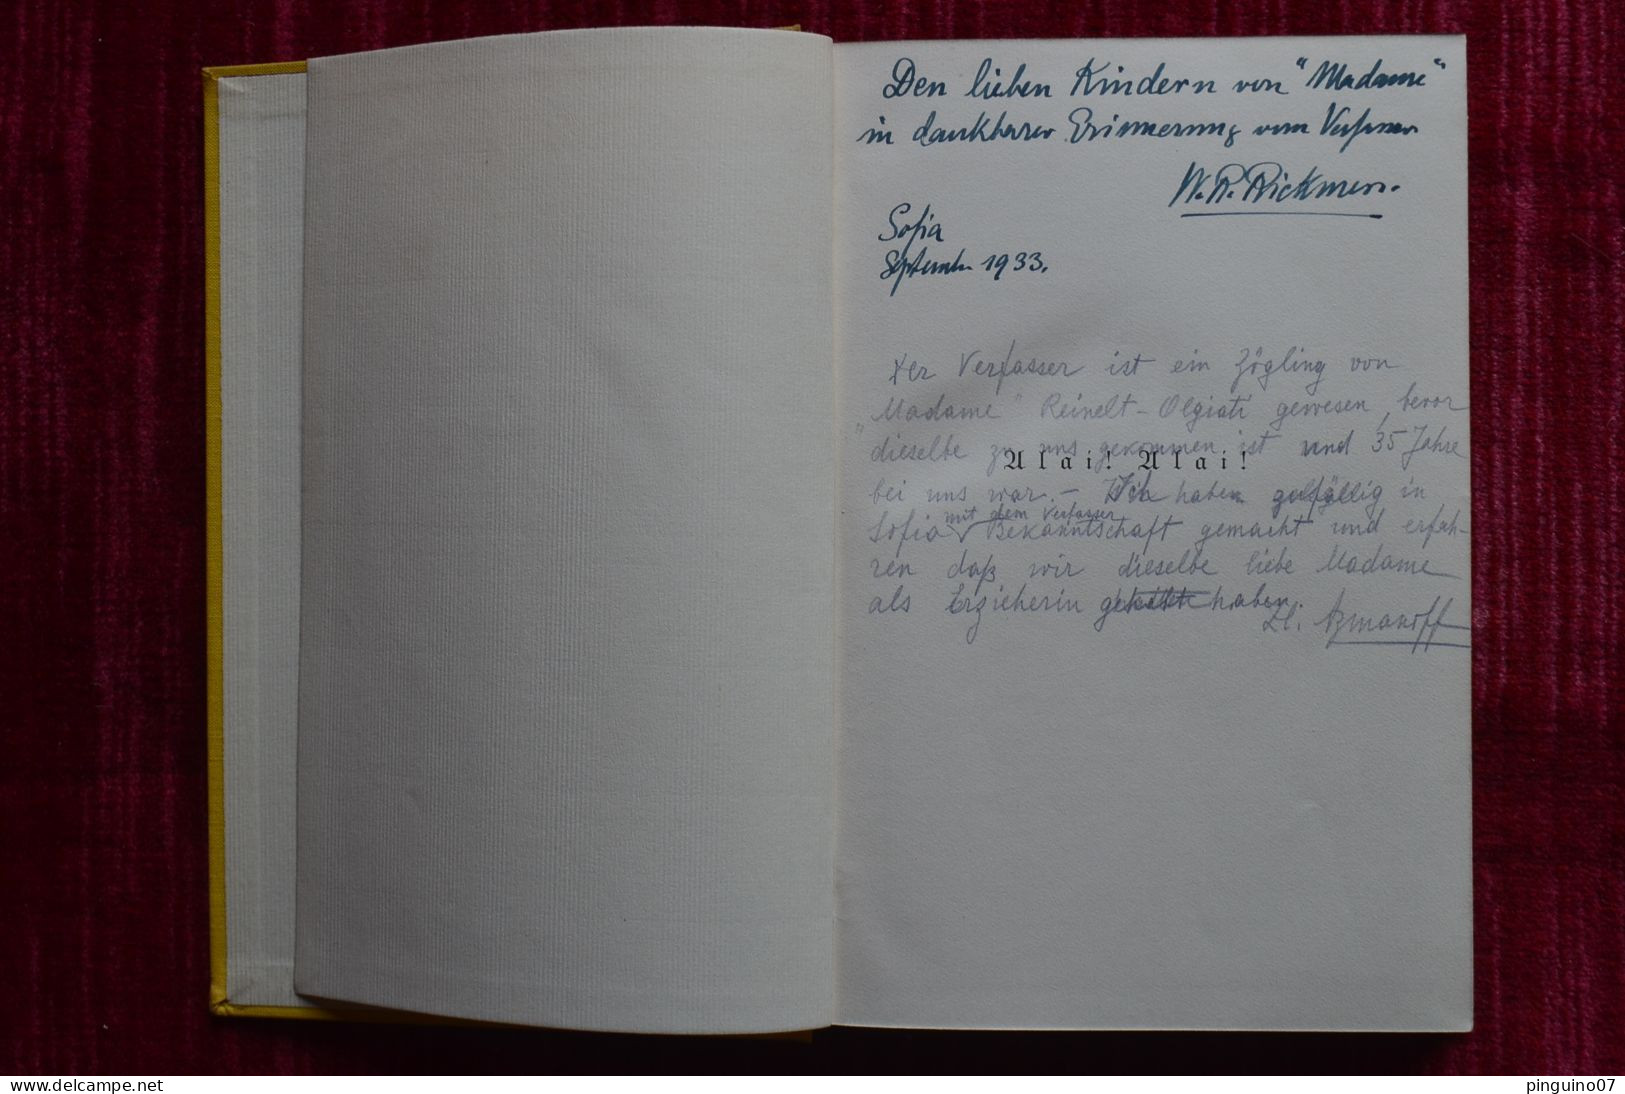 Den lieben Kindern von "Madame"
in dankbarer Erinnerung vom Verfasser
W. R. Rickmers.
Sofia
September 1933.
Der Verfasser ist ein Zögling von
"Madame" Reinelt-Olgiati gewesen, bevor
dieselbe zu uns gekommen ist und 35 Jahre
Alai! Alai!
bei uns war. – Wir haben zufällig in
mit dem Verfasser
Sofia Bekanntschaft gemacht und erfah-
ren daß wir dieselbe liebe Madame
als Erzieherin gehabt haben.
Azmanoff
www.delcampe.net
pinguino07